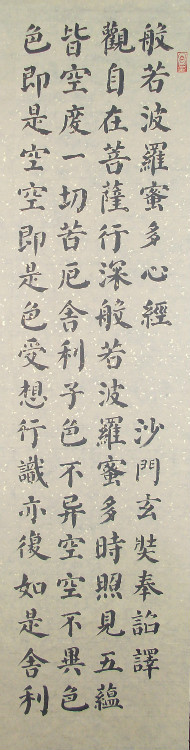 般若波羅蜜多心經 沙門玄奘奉詔譯
觀自在菩薩行深般若波羅蜜多時照見五蘊
皆空度一切苦厄舍利子色不异空空不異色
色即是空空即是色受想行識亦復如是舍利